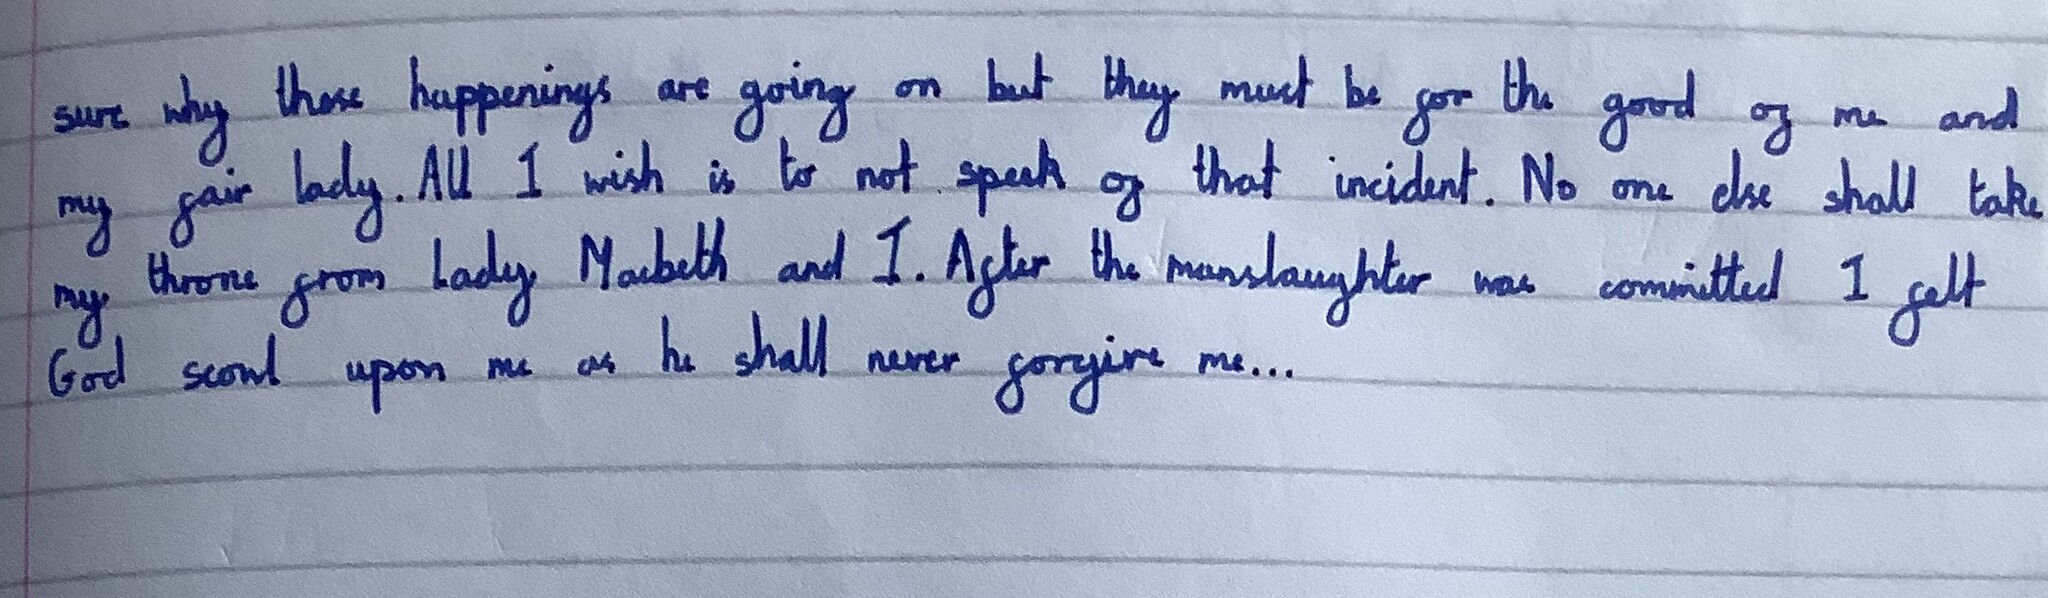 sure why those happenings are going on but they must be for the good of me and
my fair lady. All I wish is to not speak of that incident. No one else shall take
my throne from Lady Macbeth and I. After the manslaughter was committed I felt
God scowl upon me as he shall never forgive me...